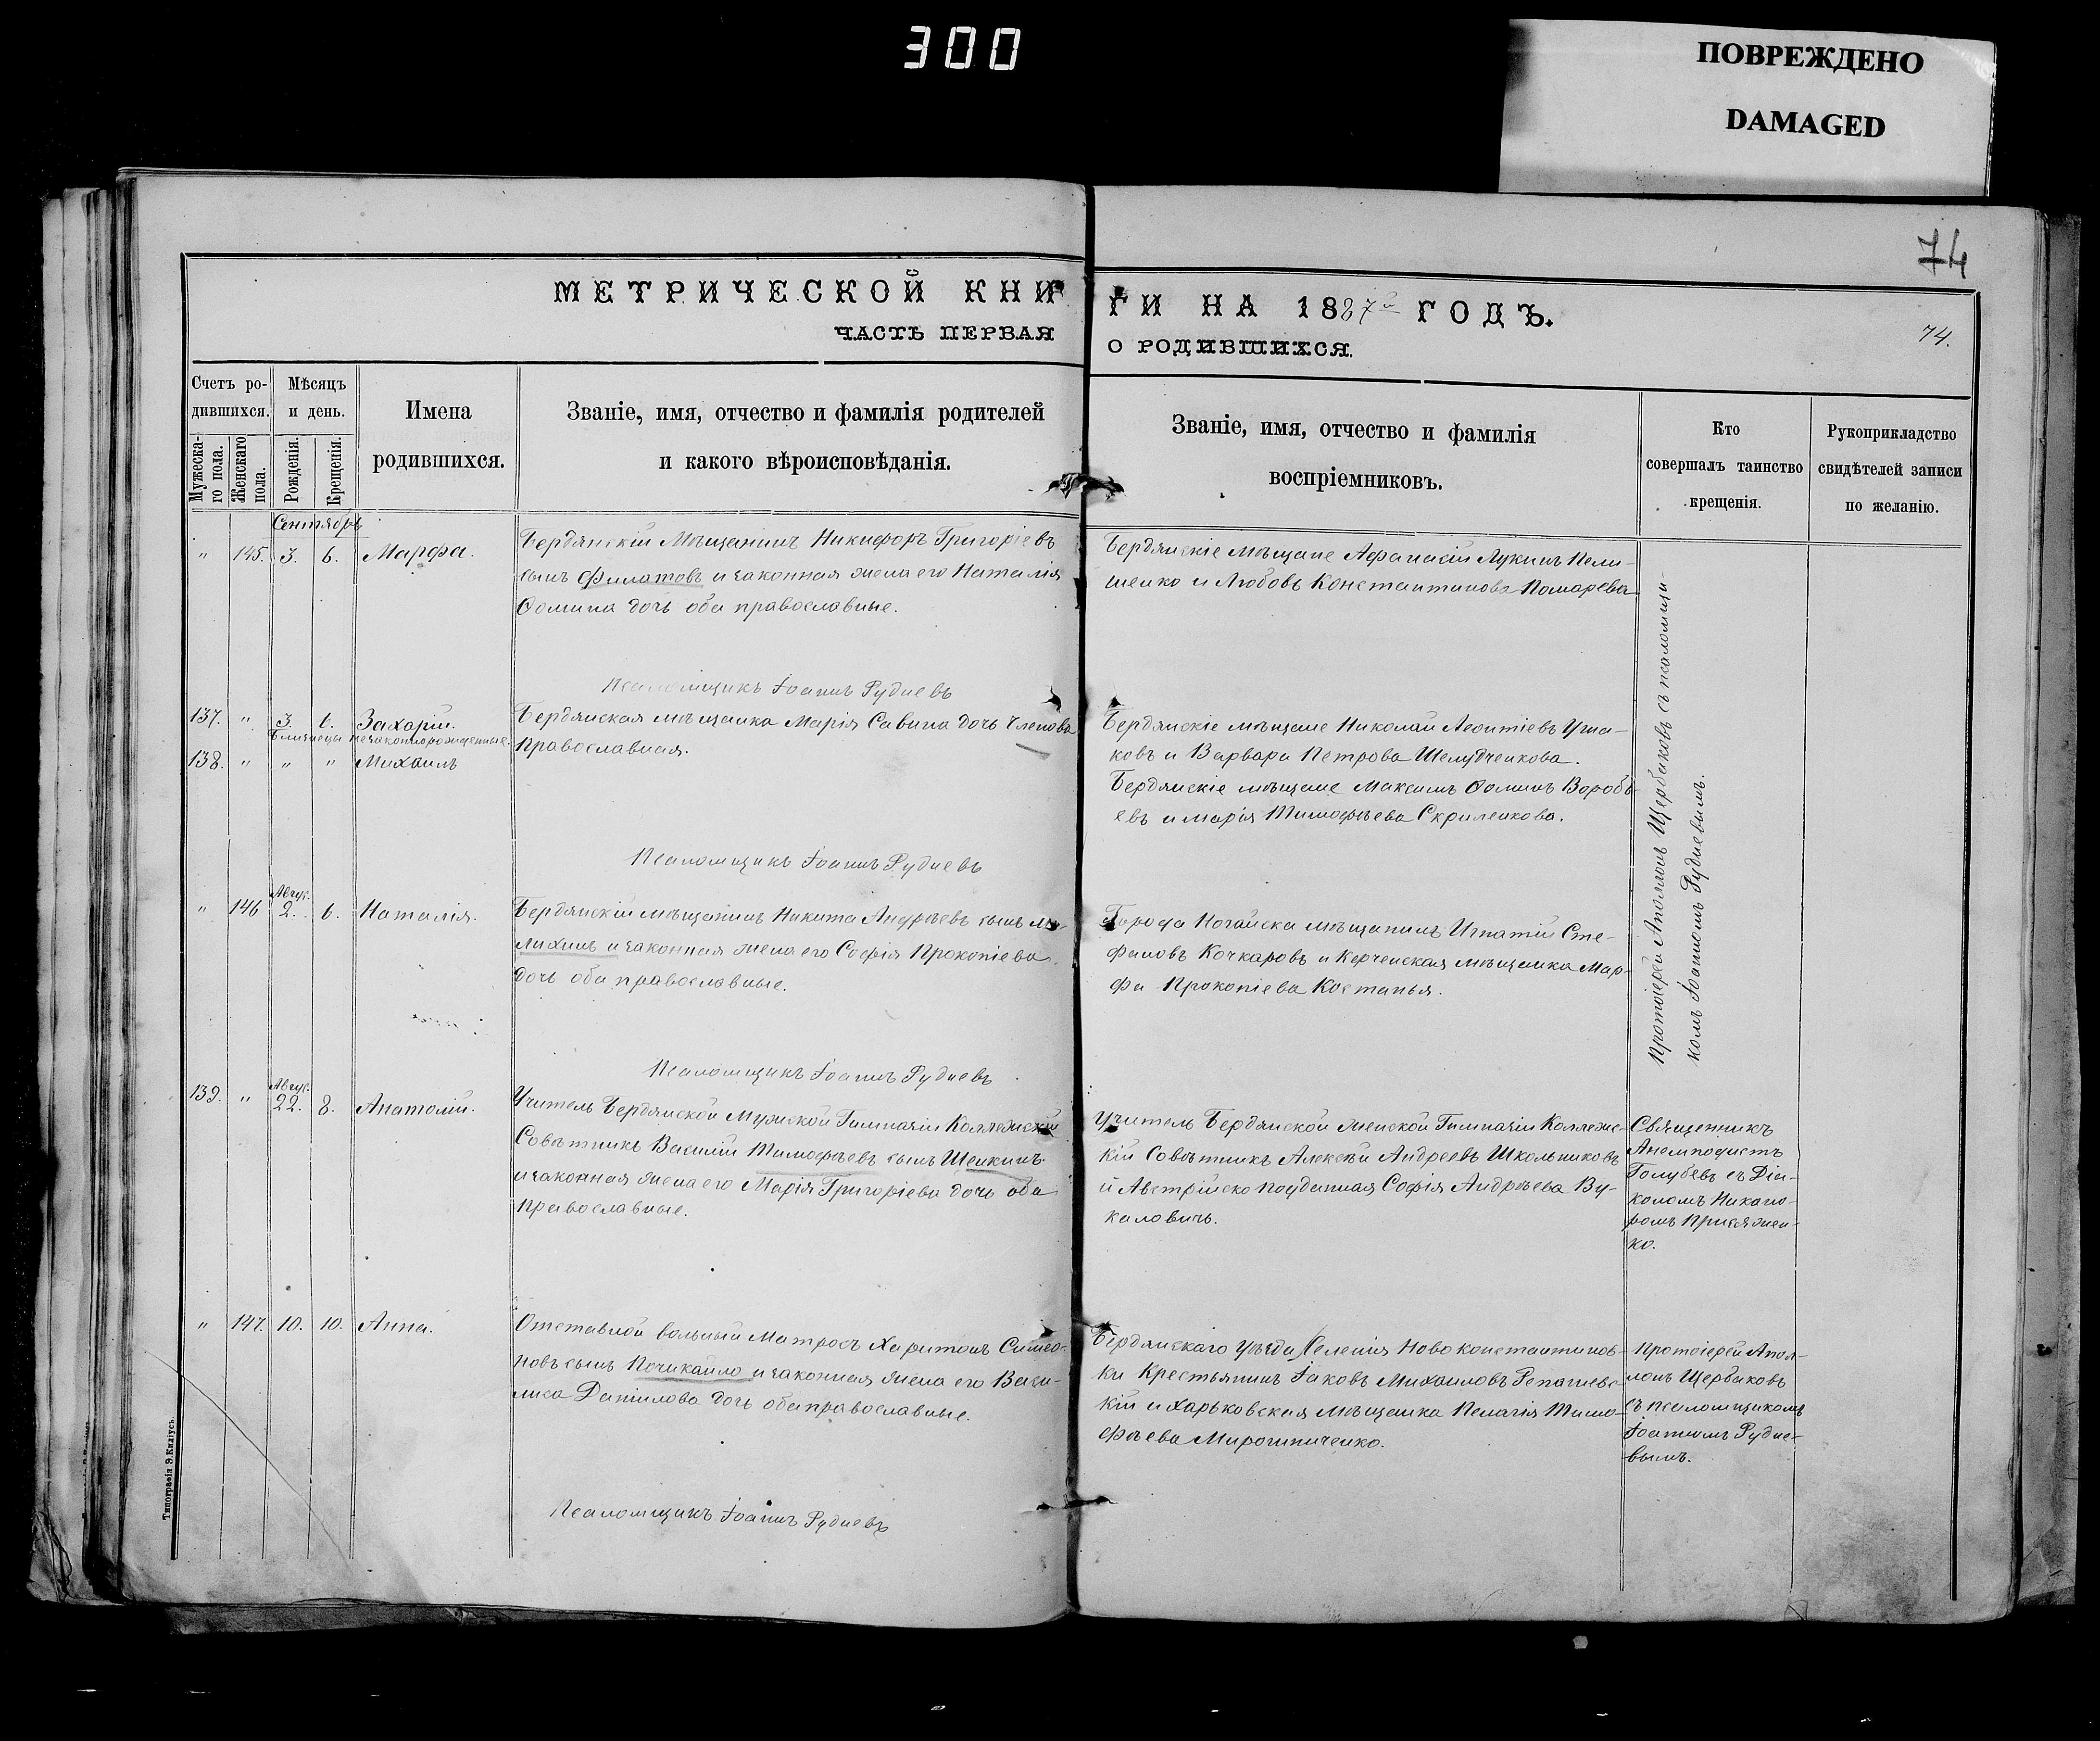 300
ПОВРЕЖДЕНО
DAMAGED
74
МЕТРИЧЕСКОЙ КНИ
ГИ НА 1887й ГОДЪ.
ЧАСТЬ ПЕРВАЯ
О РОДИВШИХСЯ.
74.
Счетъ ро-
дившихся.
Мужеска-
го пола.
Женскаго
пола.
Мѣсяцъ
и день.
Рожденія.
Крещенія.
Имена
родившихся.
Званіе, имя, отчество и фамилія родителей
и какого вѣроисповѣданія.
Званіе, имя, отчество и фамилія
воспріемниковъ.
Кто
совершалъ таинство
крещенія.
Рукоприкладство
свидѣтелей записи
по желанію.
Сентябрь
" 145. 3. 6. Марфа.
Бердянскій Мѣщанинъ Никифоръ Григоріевъ
сынъ Филатовъ и законная жена его Наталія
Ѳомина дочь оба православные.
Бердянскіе мѣщане Афанасій Лукинъ Пели-
шенко и Любовь Константинова Помарева
Протоіерей Аполлонъ Щербаковъ съ псаломщи-
комъ Іоанномъ Рудневымъ.
Псаломщикъ Іоаннъ Рудневъ
137. " 3. 6. Захарій.
Близнецы незаконнорожденные.
138. " " " Михаилъ
Бердянская мѣщанка Марія Савина дочь Членова
православная.
Бердянскіе мѣщане Николай Леонтіевъ Уша-
ковъ и Варвара Петрова Шелудченкова.
Бердянскіе мѣщане Максимъ Ѳоминъ Воробь-
евъ и Марія Тимофѣева Скриленкова.
Псаломщикъ Іоаннъ Рудневъ
Авгус.
" 146 2. 6. Наталія.
Бердянскій мѣщанинъ Никита Андрѣевъ сынъ Ма-
лихинъ и законная жена его Софія Прокопіева
дочь оба православные.
Города Ногайска мѣщанинъ Игнатій Сте-
фановъ Кочкаровъ и Керченская мѣщанка Мар-
фа Прокопіева Костанья.
Псаломщикъ Іоаннъ Рудневъ
Авгус.
139. " 22. 8. Анатолій.
Учитель Бердянской Мужской Гимназіи Коллежскій
Совѣтникъ Василій Тимофѣевъ сынъ Шенкинъ
и законная жена его Марія Григоріева дочь оба
православные.
Учитель Бердянской женской Гимназіи Коллежс-
кій Совѣтникъ Алексѣй Андреевъ Школьниковъ
и Австрійско подданная Софія Андрѣева Ву-
каловичъ.
Священникъ
Анемподистъ
Голубевъ съ Діа-
кономъ Никано-
ромъ Присяжен-
ко.
" 147. 10. 10. Анна.
Отставной вольный Матросъ Харитонъ Симео-
новъ сынъ Почикайло и законная жена его Васи-
лиса Даніилова дочь оба православные.
Бердянскаго Уѣзда Селенія Ново константинов-
ки Крестьянинъ Іаковъ Михаиловъ Репачевс-
кій и Харьковская Мѣщанка Пелагія Тимо-
фѣева Мирошниченко.
Протоіерей Апол-
лонъ Щербаковъ
съ псаломщикомъ
Іоанномъ Рудне-
вымъ.
Псаломщикъ Іоаннъ Рудневъ
Типографія Э. Килиусъ.